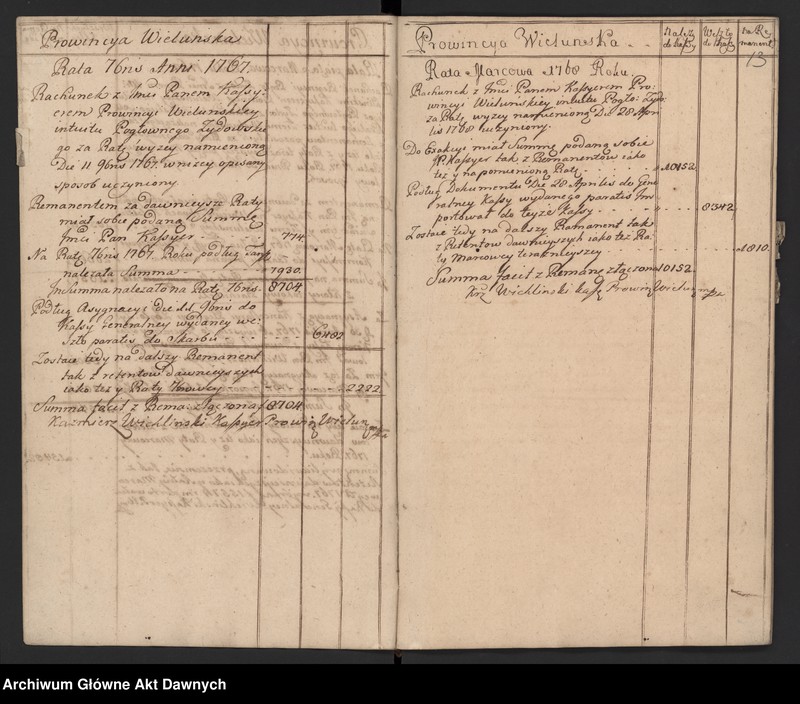 Prowincya Wielunska
Rata 7bris Anni 1767.
Rachunek z Jmci Panem Kassy-
erem Prowincyi Wielunskiey
intuitu Pogłownego Zydowskie
go za Ratę wyzey namienioną
Die 11 9bris 1767. w nizey opisany
sposob uczyniony
Remanentem za dawnieysze Raty
miał sobie podaną Summę
Jmci Pan Kassyer - - - 774.
Na Ratę 7bris 1767. Roku podług
nalezała Summa - - - 7930.
In Summa nalezało na Ratę 7bris. 8704
Podług Asygnacyi die 9bris do
Kassy Generalney wydaney we-
szło paratis do Skarbu - - - 6482
Zostaie tedy na dalszy Remanent
tak z retentow dawnieyszych
iako tez y Raty - - - 2222.
Summa facit z Rema: złączona 8704
Kazimierz Wichlinski Kassyer Prowin Wielun mpp
Prowincya Wielunska . .
Nalezy do Kassy
Weszło do Kassy
na Remanent
13
Rata Marcowa 1768 Roku
Rachunek z Jmci Panem Kassyerem Pro-
wincyi Wielunskiey intuitu Pogło: Zydo:
za Ratę wyzey namienioną Die 28 Apri-
lis 1768 uczyniony.
Do Exakcyi miał Summę podaną sobie
JP. Kassyer tak z Remanentow iako
tez y na pomienioną Ratę - - - 10152
Podług Dokumentu Die 28 Aprilis do Gene
ralney Kassy wydanego paratis Im
portował do teyze Kassy - - - 8342
Zostaie tedy na dalszy Remanent tak
z Retentow dawnieyszych iako tez Ra-
ty Marcowey teraznieyszey - - - 1810.
Summa facit z Remane: złączona 10152
Krz Wichlinski Kassy Prowin Wielun mpp
Archiwum Główne Akt Dawnych